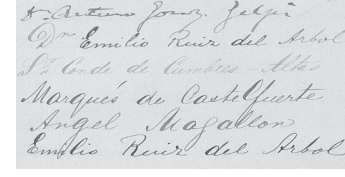 Dn. Arturo Gomz.
Dn Emilio Ruiz del Arbol
Sr. Conde de Cumbres Altas
Marqués de Castelfuerte
Angel Magallon
Emilio Ruiz del Arbol